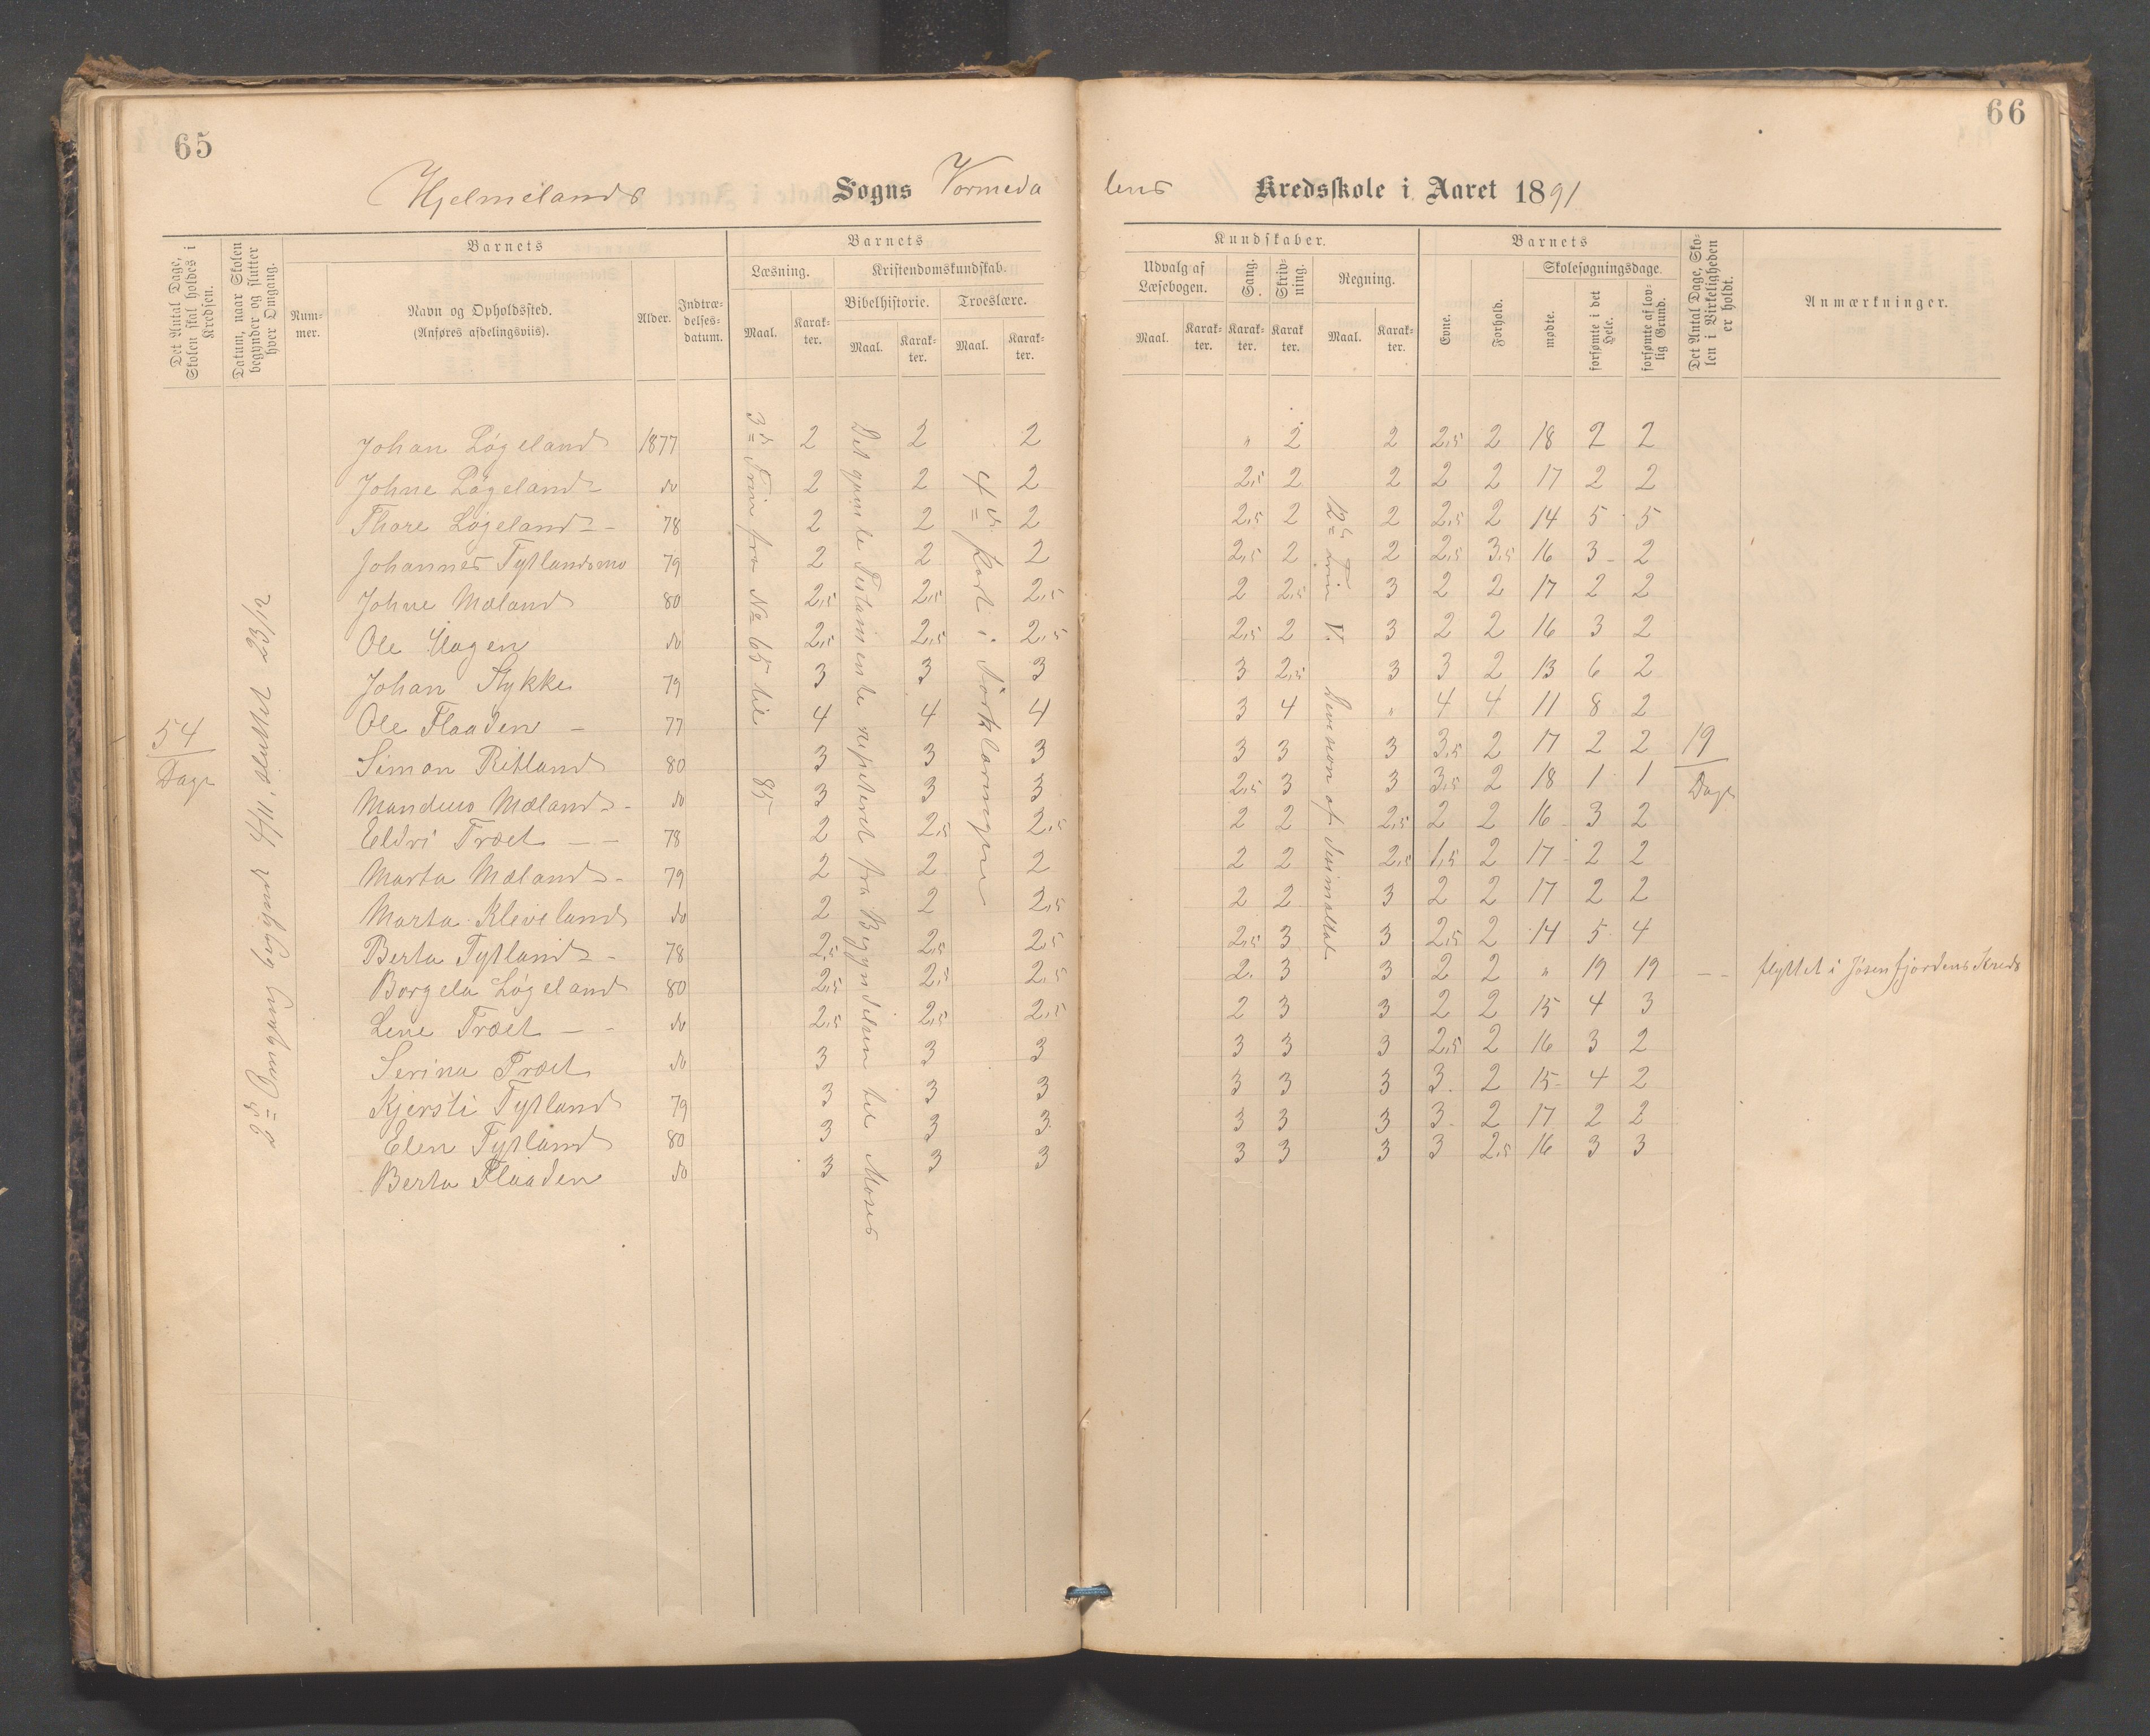 65
66
Hjelmelands Sogns Vormeda
lens Kredsskole i Aaret 1891
Det Antal Dage, Skolen skal holdes i Kredsen.
Datum, naar Skolen begynder og slutter hver Omgang.
Barnets
Num-mer.
Navn og Opholdssted.
(Anføres afdelingsviis).
Alder.
Indtræ-delses-datum.
Barnets
Læsning.
Maal.
Karak-ter.
Kristendomskundskab.
Bibelhistorie.
Maal.
Karak-ter.
Troeslære.
Maal.
Karak-ter.
Kundskaber.
Udvalg af Læsebogen.
Maal.
Karak-ter.
Sang.
Karak-ter.
Skriv-ning.
Karak ter.
Regning.
Maal.
Karak-ter.
Barnets
Evne.
Forhold.
Skolesøgningsdage.
mødte.
forsømte i det Hele.
forsømte af lov-lig Grund.
Det Antal Dage, Sko-len i Virkeligheden er holdt.
Anmærkninger.
54
Dage
2den Omgang begyndt 4/11, sluttet 23/12
3die Trin fra No 65 til 85
Det gamle Testamente repeteret fra Begyndelsen til Moses
4de Part i Forklaringen
12te Trin V. Devision af desimaltal
19
Dage
Johan Løgeland 1877 2 2 2 " 2 2 2,5 2 18 2 2
Johne Løgeland do 2 2 2 2,5 2 2 2 2 17 2 2
Thore Løgeland - 78 2 2 2 2,5 2 2 2,5 2 14 5 5
Johannes Tytlandsmo 79 2 2 2 2,5 2 2 2,5 3,5 16 3 2
Johne Mæland 80 2,5 2,5 2,5 2 2,5 3 2 2 17 2 2
Ole Hagen do 2,5 2,5 2,5 2,5 2 3 2 2 16 3 2
Johan Stykke 79 3 3 3 3 2,5 3 3 2 13 6 2
Ole Flaaden - 77 4 4 4 3 4 " 4 4 11 8 2
Simon Ritland 80 3 3 3 3 3 3 3,5 2 17 2 2
Mandius Mæland - do 3 3 3 2,5 3 3 3,5 2 18 1 1
Eldri Træet - - 78 2 2,5 2,5 2 2 2,5 2 2 16 3 2
Marta Mæland - 79 2 2 2 2 2 2,5 1,5 2 17 2 2
Marta Kleveland do 2 2 2,5 2 2 3 2 2 17 2 2
Berta Tytland - 78 2,5 2,5 2,5 2,5 3 3 2,5 2 14 5 4
Borgela Løgeland 80 2,5 2,5 2,5 2 3 3 2 2 " 19 19 - - flyttet i Jøsenfjordens Kreds
Lene Træet - - do 2,5 2,5 2,5 2 3 3 2 2 15 4 3
Serina Træet do 3 3 3 3 3 3 2,5 2 16 3 2
Kjersti Tytland 79 3 3 3 3 3 3 3 2 15 4 2
Elen Tytland 80 3 3 3 3 3 3 3 2 17 2 2
Berta Flaaden do 3 3 3 3 3 3 3 2,5 16 3 3